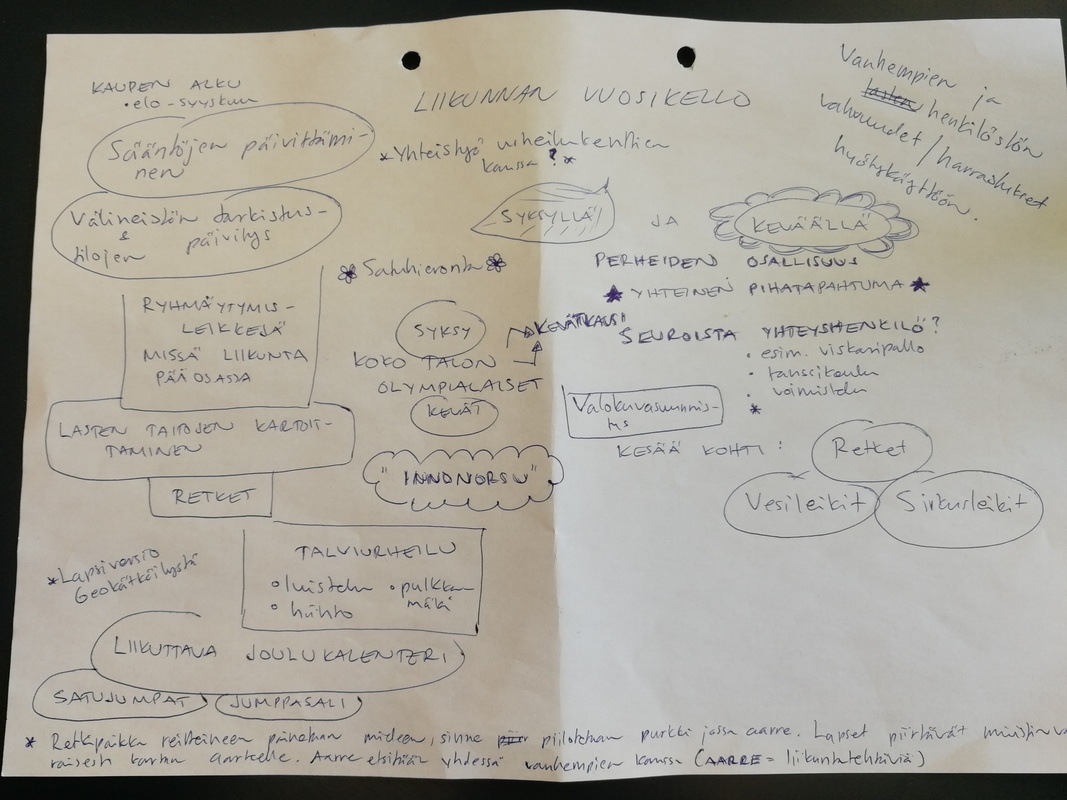 KAUDEN ALKU
• elo-syyskuu
Sääntöjen päivittämi-
nen
Välineistön tarkistus-
&
tilojen päivitys
RYHMÄYTYMIS-
LEIKKEJÄ
MISSÄ LIIKUNTA
PÄÄOSASSA
LASTEN TAITOJEN KARTOIT-
TAMINEN
RETKET
* Lapsiversio
Geokätköilystä
TALVIURHEILU
• luistelu • pulkka-
• hiihto mäki
LIIKUTTAVA JOULUKALENTERI
SATUJUMPAT JUMPPASALI
LIIKUNNAN VUOSIKELLO
* Yhteistyö urheilukenttien
kanssa ? *
SYKSYLLÄ JA KEVÄÄLLÄ
Satuhieronta
SYKSY
KEVÄTKAUSI
KOKO TALON
OLYMPIALAISET
KEVÄT
"INNONORSU"
Vanhempien ja
lasten henkilöstön
vahvuudet / harrastukset
hyötykäyttöön.
PERHEIDEN OSALLISUUS
★ YHTEINEN PIHATAPAHTUMA ★
SEUROISTA YHTEYSHENKILÖ?
• esim. viskaripallo
• tanssikoulu
• voimistelu
*
Valokuvasuunnis-
tus
KESÄÄ KOHTI :
Retket
Vesileikit Sirkusleikit
* Retkipaikka reitteineen painetaan mieleen, sinne piilotetaan purkki jossa aarre. Lapset piirtävät muistinva
raisesti kartan aarteelle. Aarre etsitään yhdessä vanhempien kanssa (AARRE = liikuntatehtäviä)